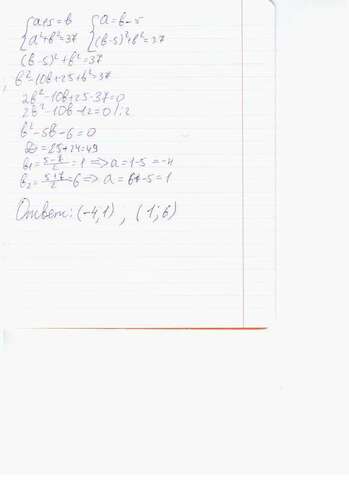 {a+5=b {a=b-5
{a²+b²=37 {(b-5)²+b²=37
(b-5)²+b²=37
b²-10b+25+b²=37
2b²-10b+25-37=0
2b²-10b-12=0 /:2
b²-5b-6=0
D=25+24=49
b₁=(5-7)/2=1 ⇒ a=1-5=-4
b₂=(5+7)/2=6 ⇒ a=6-5=1
Ответ: (-4;1) ; (1;6)